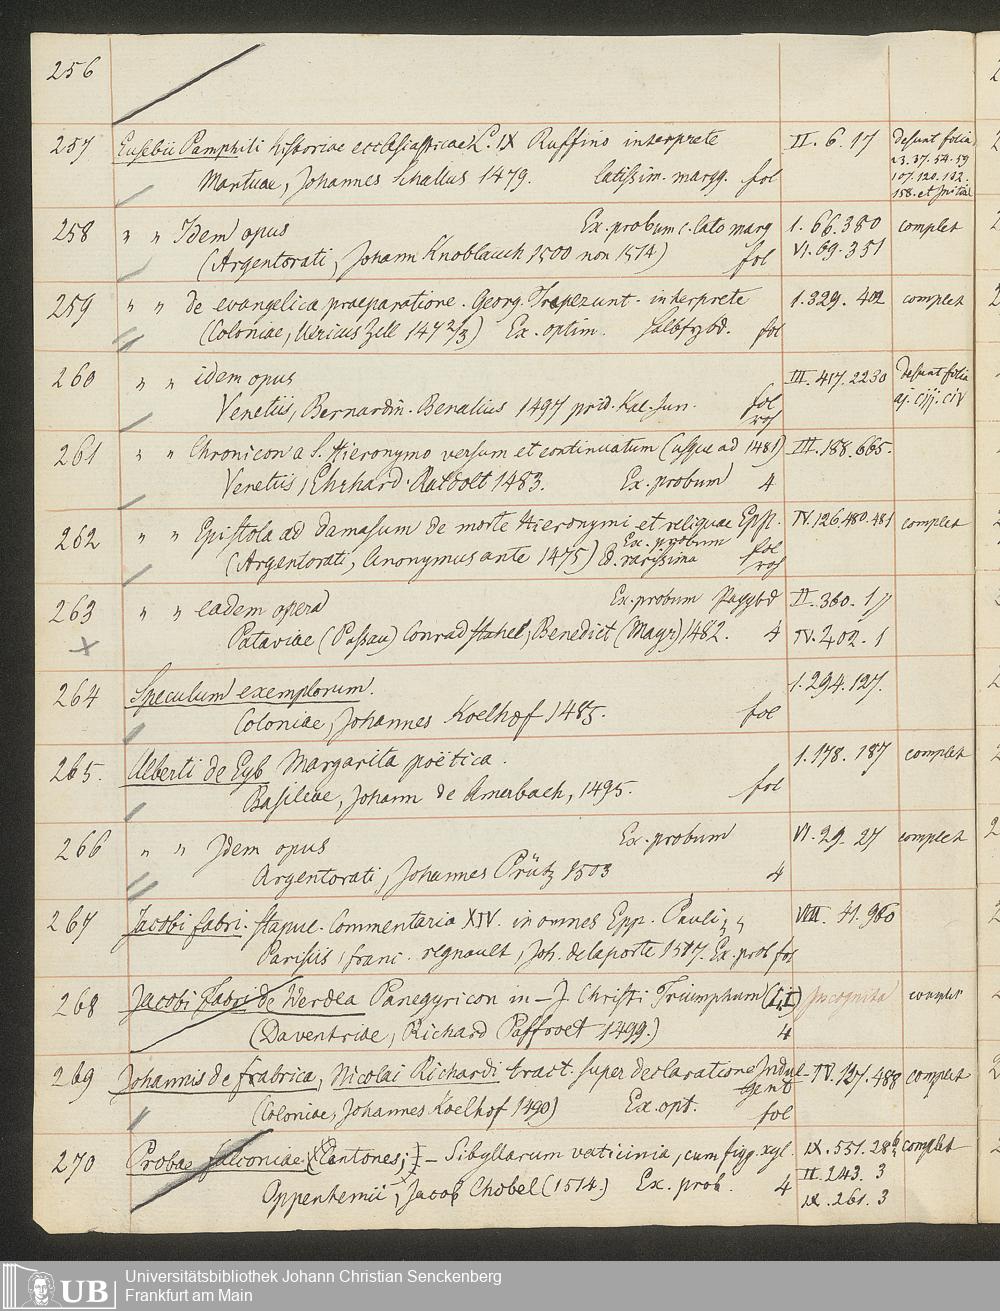 256
257 Eusebii Pamphili historiae ecclesiasticae L. IX Ruffino interprete II. 6. 17 desunt folia
Mantuae, Johannes Schallus 1479. latissim. margg. fol 23. 37. 54. 59
107. 120. 132.
158. et initial
258 " " Idem opus Ex. probum c. lato marg 1. 66. 380 complet
(Argentorati, Johann Knoblauch 1500 non 1514) fol VI. 69. 351
259 " " de evangelica praeparatione. Georg. Trapezunt. interprete 1. 329. 402 complet
(Coloniae, Ulricus Zell 1472/3) Ex. optim. fol
260 " " idem opus III. 417. 2230 desunt folia
Venetiis, Bernardin. Benalius 1497 prid. Kal. Jun. fol aj. ciij. civ
261 " " Chronicon a S. Hieronymo versum et continuatum (usque ad 1481) III. 188. 665.
Venetiis, Ehrhard Ratdolt 1483. Ex. probum 4
262 " " Epistola ad Damasum de morte Hieronymi et reliquae Epp. IV. 126. 480. 481 complet
(Argentorati, Anonymus ante 1475) Ex. probum
rarissima fol
263 " " eadem opera Ex. probum II. 360. 17
Pataviae (Passau) Conrad Stahel, Benedict (Mayr) 1482. 4 IV. 402. 1
264 Speculum exemplorum. 1. 294. 127.
Coloniae, Johannes Koelhof 1485. fol
265. Alberti de Eyb Margarita poëtica. 1. 178. 187 complet
Basileae, Johann de Amerbach, 1495. fol
266 " " Idem opus Ex. probum VI. 29. 27 complet
Argentorati, Johannes Prütz 1503 4
267 Jacobi fabri. Stapul. Commentaria XIV. in omnes Epp. Pauli VIII. 41. 960
Parisiis, franc. regnault, Joh. delaporte 1517. Ex. prob fol
268 Jacobi fabri de Werdea Panegyricon in J. Christi Triumphum (L I) Incognita complet
(Daventriae, Richard Paffroet 1499.) 4
269 Johannis de fabrica, Nicolai Richardi tract. super declaratione Indul IV. 127. 488 complet
gent
(Coloniae, Johannes Koelhof 1490) Ex. opt. fol
270 Probae falconiae (Centones,) – Sibyllarum vaticinia, cum figg. xyl IX. 551. 28 complet
Oppenhemii, Jacob Chobel (1514.) Ex. prob. 4 II. 243. 3
IX. 261. 3
UB
Universitätsbibliothek Johann Christian Senckenberg
Frankfurt am Main